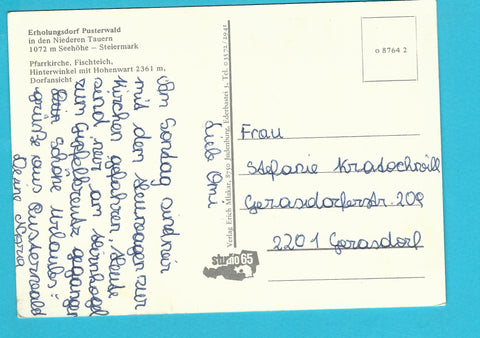 Erholungsdorf Pusterwald
in den Niederen Tauern
1072 m Seehöhe – Steiermark
Pfarrkirche, Fischteich,
Hinterwinkel mit Hohenwart 2361 m,
Dorfansicht
Liebe Omi
Am Sonntag sind wir
mit den Heuwagen zur
Kirchen gefahren. Heute
sind wir am
zum Gipfelkreutz gegangen
Schöne Urlaubs-
grüße aus Pusterwald
Deine
Verlag Erich Mlakar, 8750 Judenburg, Ederbastei 3, Tel. 0 35 72 / 29 41
o 8764 2
Frau
Stefanie Kratochwill
Gerasdorferstr. 209
2201 Gerasdorf
studio 65